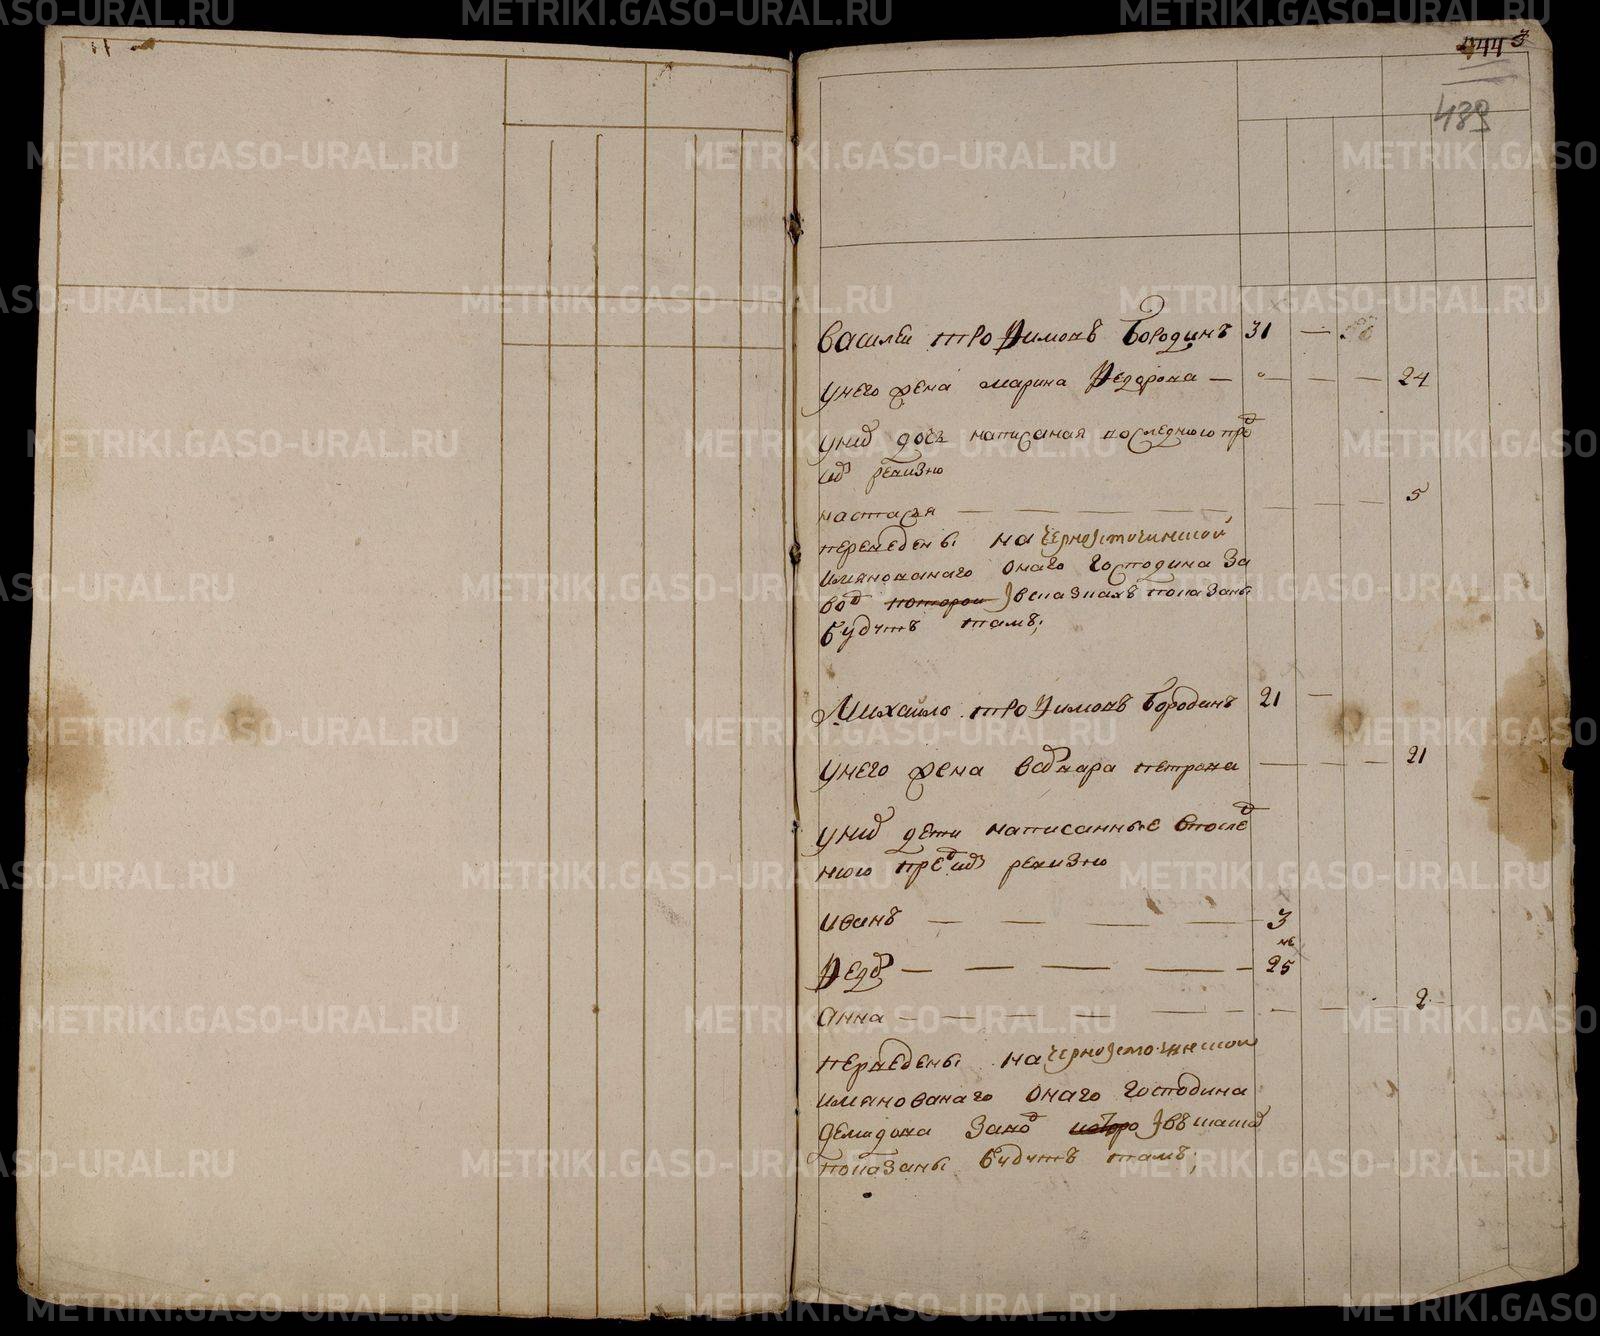 443
489
Василеи трофимовъ Бородинъ 31 — 36
унего жена марина Федорова — " — — — 24
уних дочь написаная последнюю пред
сих ревизию
настасья — — — — — — — 5
переведены на черноисточинской
имянованаго онаго господина за
вод которои Ивсказкахъ показаны
будутъ тамъ;
Михаило трофимовъ Бородинъ 21 —
унего жена варвара петрова — — — 21
уних дети написанные впослед
нюю пред сих ревизию
иванъ — — — — 3
не
Федор — — — — — 25
анна — — — — — — — 2
переведены на черноисточинской
имянованаго онаго господина
демидова завод которо Ивсказках
показаны будутъ тамъ;
METRIKI.GASO-URAL.RU